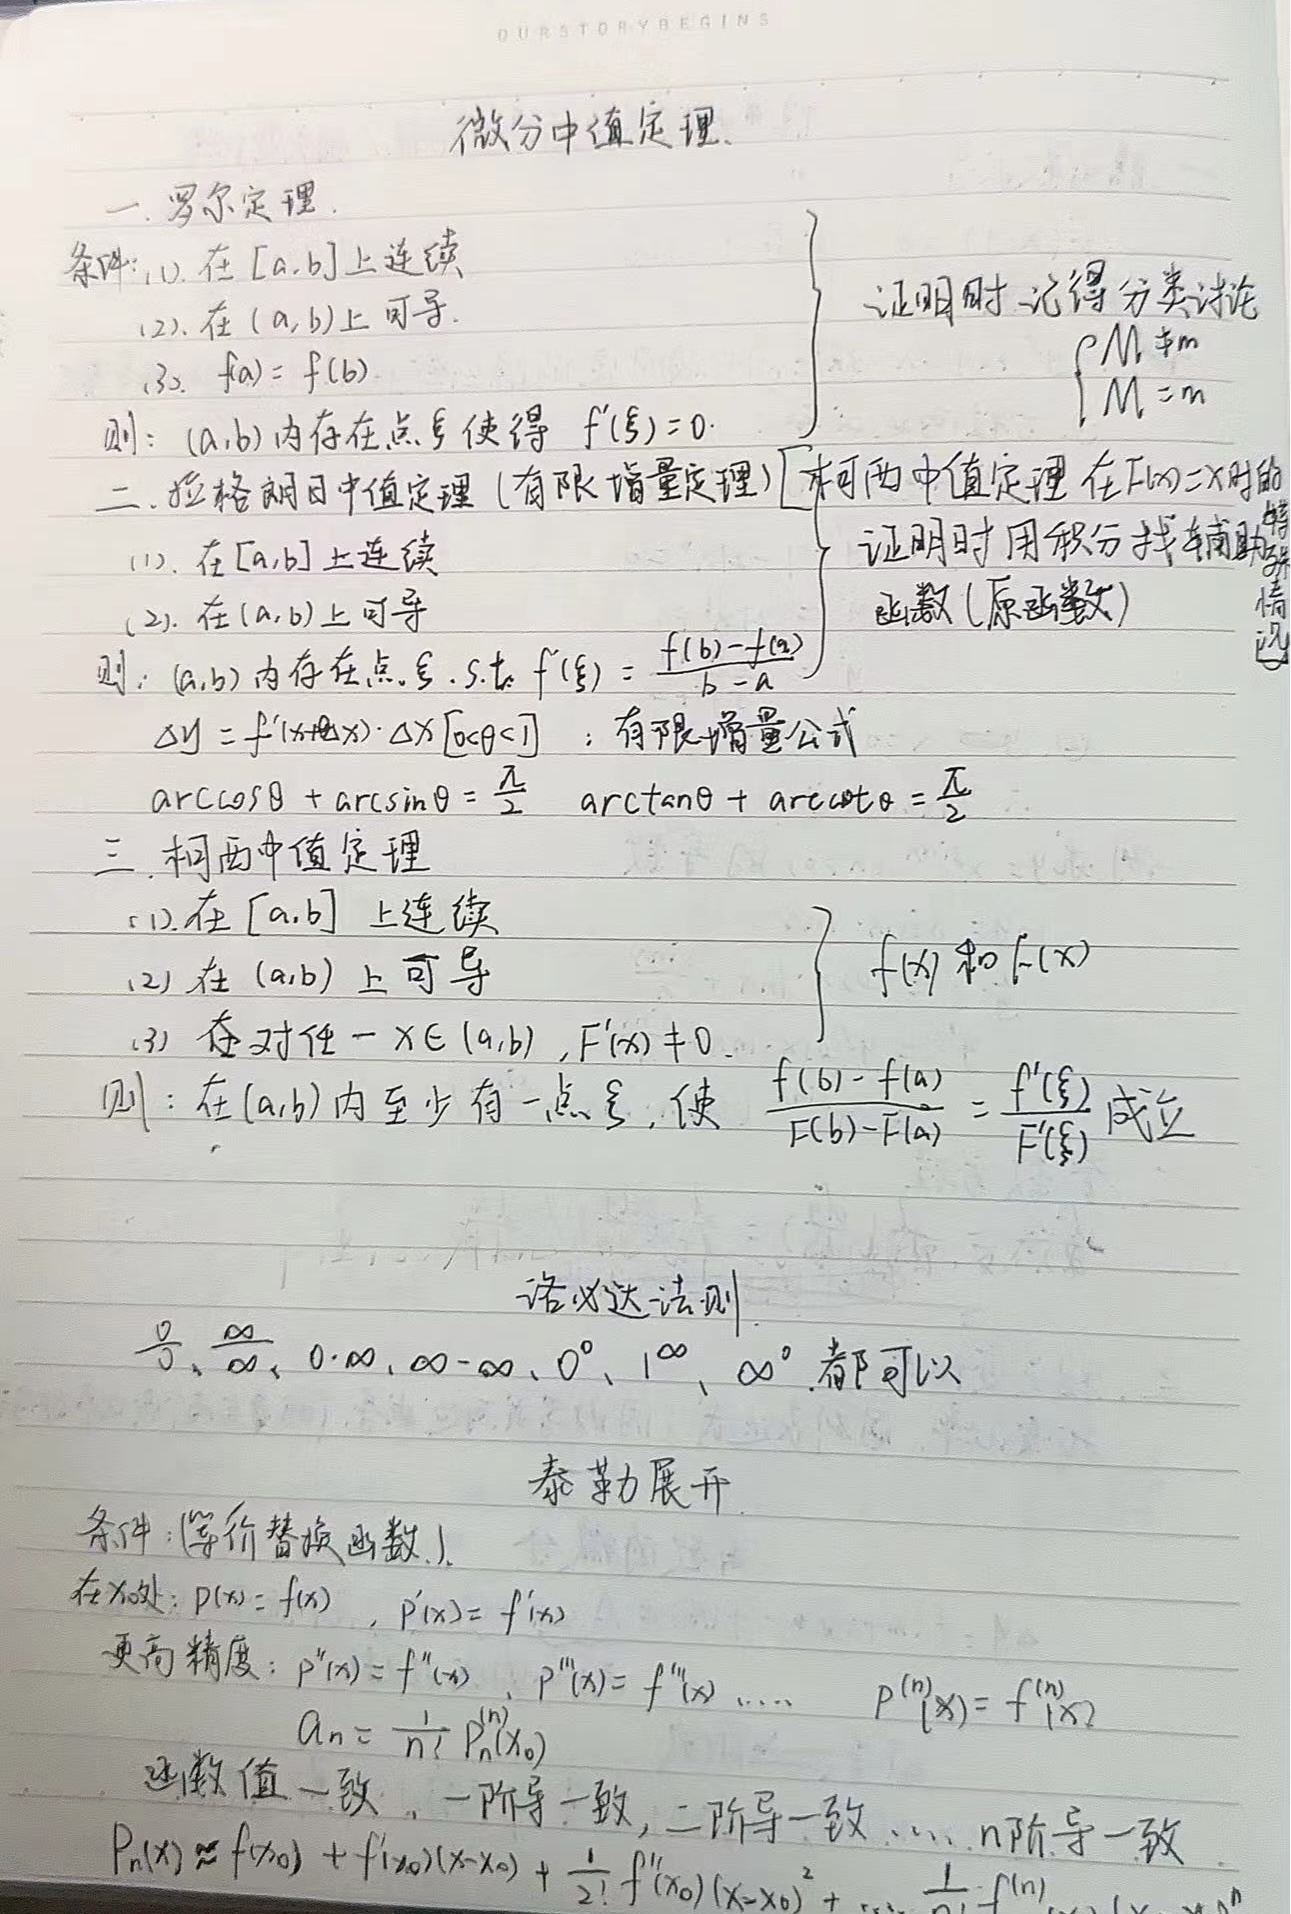 OURSTORYBEGINS
微分中值定理.
一. 罗尔定理.
条件: (1). 在 [a,b] 上连续
(2). 在 (a,b) 上可导.
(3). f(a) = f(b).
则: (a,b) 内存在点 ξ 使得 f'(ξ) = 0.
证明时 记得分类讨论
{ M ≠ m
M = m
二. 拉格朗日中值定理 (有限增量定理) [柯西中值定理 在 F(x)=x 时的特殊情况]
(1). 在 [a,b] 上连续
(2). 在 (a,b) 上可导
证明时用积分找辅助
函数 (原函数)
则: (a,b) 内存在点 ξ. s.t. f'(ξ) = \frac{f(b)-f(a)}{b-a}
Δy = f'(x+θΔx)·Δx [0<θ<1] : 有限增量公式
arccosθ + arcsinθ = \frac{π}{2} arctanθ + arccotθ = \frac{π}{2}
三. 柯西中值定理
(1). 在 [a,b] 上连续
(2) 在 (a,b) 上可导
(3) 在对任一 x∈(a,b), F'(x) ≠ 0.
f(x) 和 F(x)
则: 在 (a,b) 内至少有一点 ξ, 使 \frac{f(b)-f(a)}{F(b)-F(a)} = \frac{f'(ξ)}{F'(ξ)} 成立
洛必达法则.
\frac{0}{0}、\frac{∞}{∞}、0·∞、∞-∞、0^0、1^∞、∞^0 都可以
泰勒展开.
条件: (等价替换函数).
在x₀处: P(x) = f(x) , P'(x) = f'(x)
更高精度: P''(x) = f''(x) 、 P'''(x) = f'''(x) ..... P^{(n)}(x) = f^{(n)}(x)
aₙ = \frac{1}{n!} Pₙ^{(n)}(x₀)
函数值一致、一阶导一致, 二阶导一致 ..... n阶导一致.
Pₙ(x) ≈ f(x₀) + f'(x₀)(x-x₀) + \frac{1}{2!} f''(x₀)(x-x₀)² + ... \frac{1}{n!} f^{(n)}